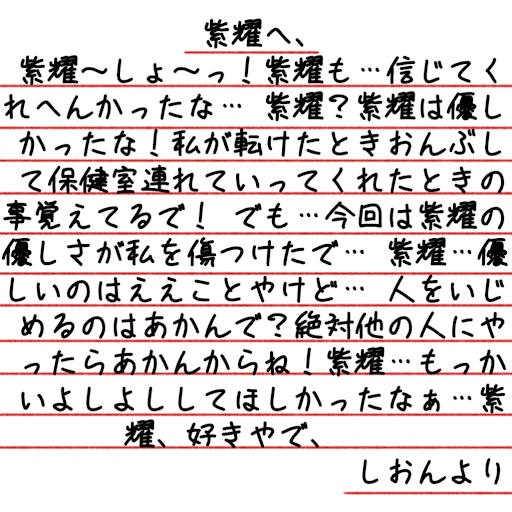 紫耀へ、
紫耀～しょ～っ！紫耀も…信じてく
れへんかったな… 紫耀？紫耀は優し
かったな！私が転けたときおんぶし
て保健室連れていってくれたときの
事覚えてるで！ でも…今回は紫耀の
優しさが私を傷つけたで… 紫耀…優
しいのはええことやけど… 人をいじ
めるのはあかんで？絶対他の人にや
ったらあかんからね！紫耀…もっか
いよしよししてほしかったなぁ…紫
耀、好きやで、
しおんより